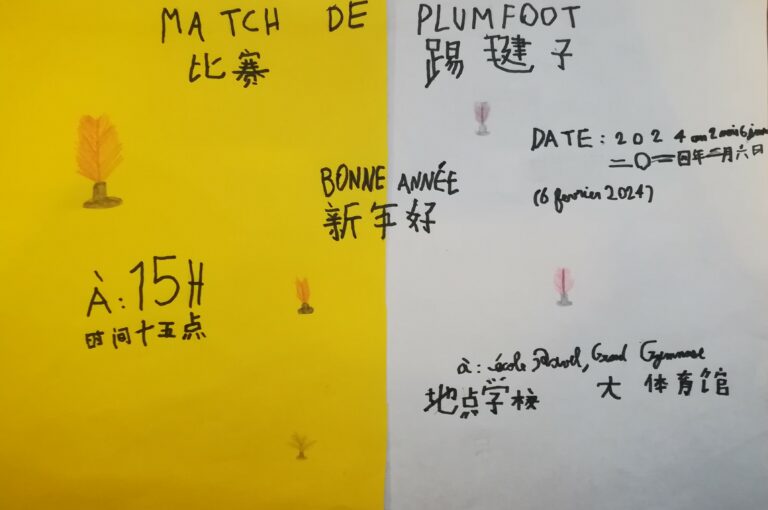 MATCH DE PLUMFOOT
比赛 踢毽子
DATE: 2024 an 2 mois 6 jours
二〇二四年二月六日
BONNE ANNÉE
(6 fevrier 2024)
新年好
À: 15H
时间十五点
à: école Ravel, Grand Gymnase
地点学校 大体育馆